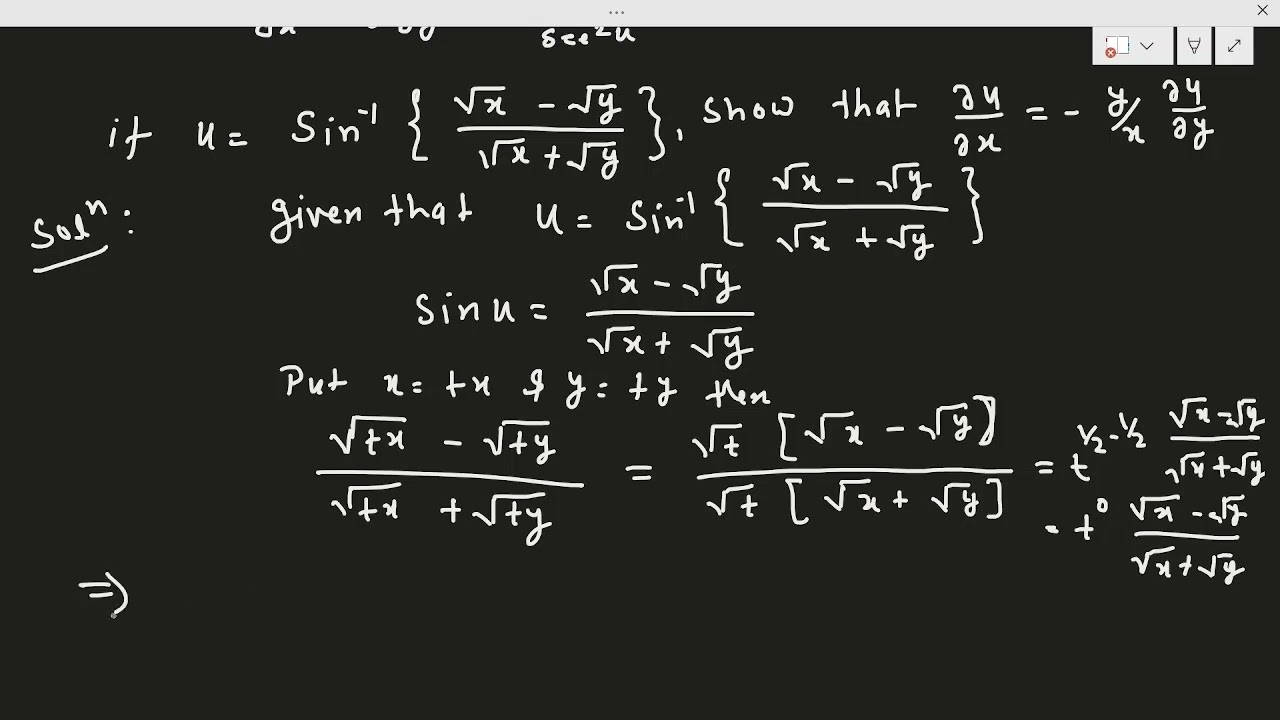 sec²u
if u = Sin⁻¹ { (√x - √y) / (√x + √y) }, show that ∂u/∂x = - y/x ∂u/∂y
Solⁿ: given that u = Sin⁻¹ { (√x - √y) / (√x + √y) }
Sin u = (√x - √y) / (√x + √y)
Put x = tx & y = ty then
(√tx - √ty) / (√tx + √ty) = √t [√x - √y] / √t [√x + √y] = t^(1/2 - 1/2) (√x - √y) / (√x + √y)
= t⁰ (√x - √y) / (√x + √y)
⇒